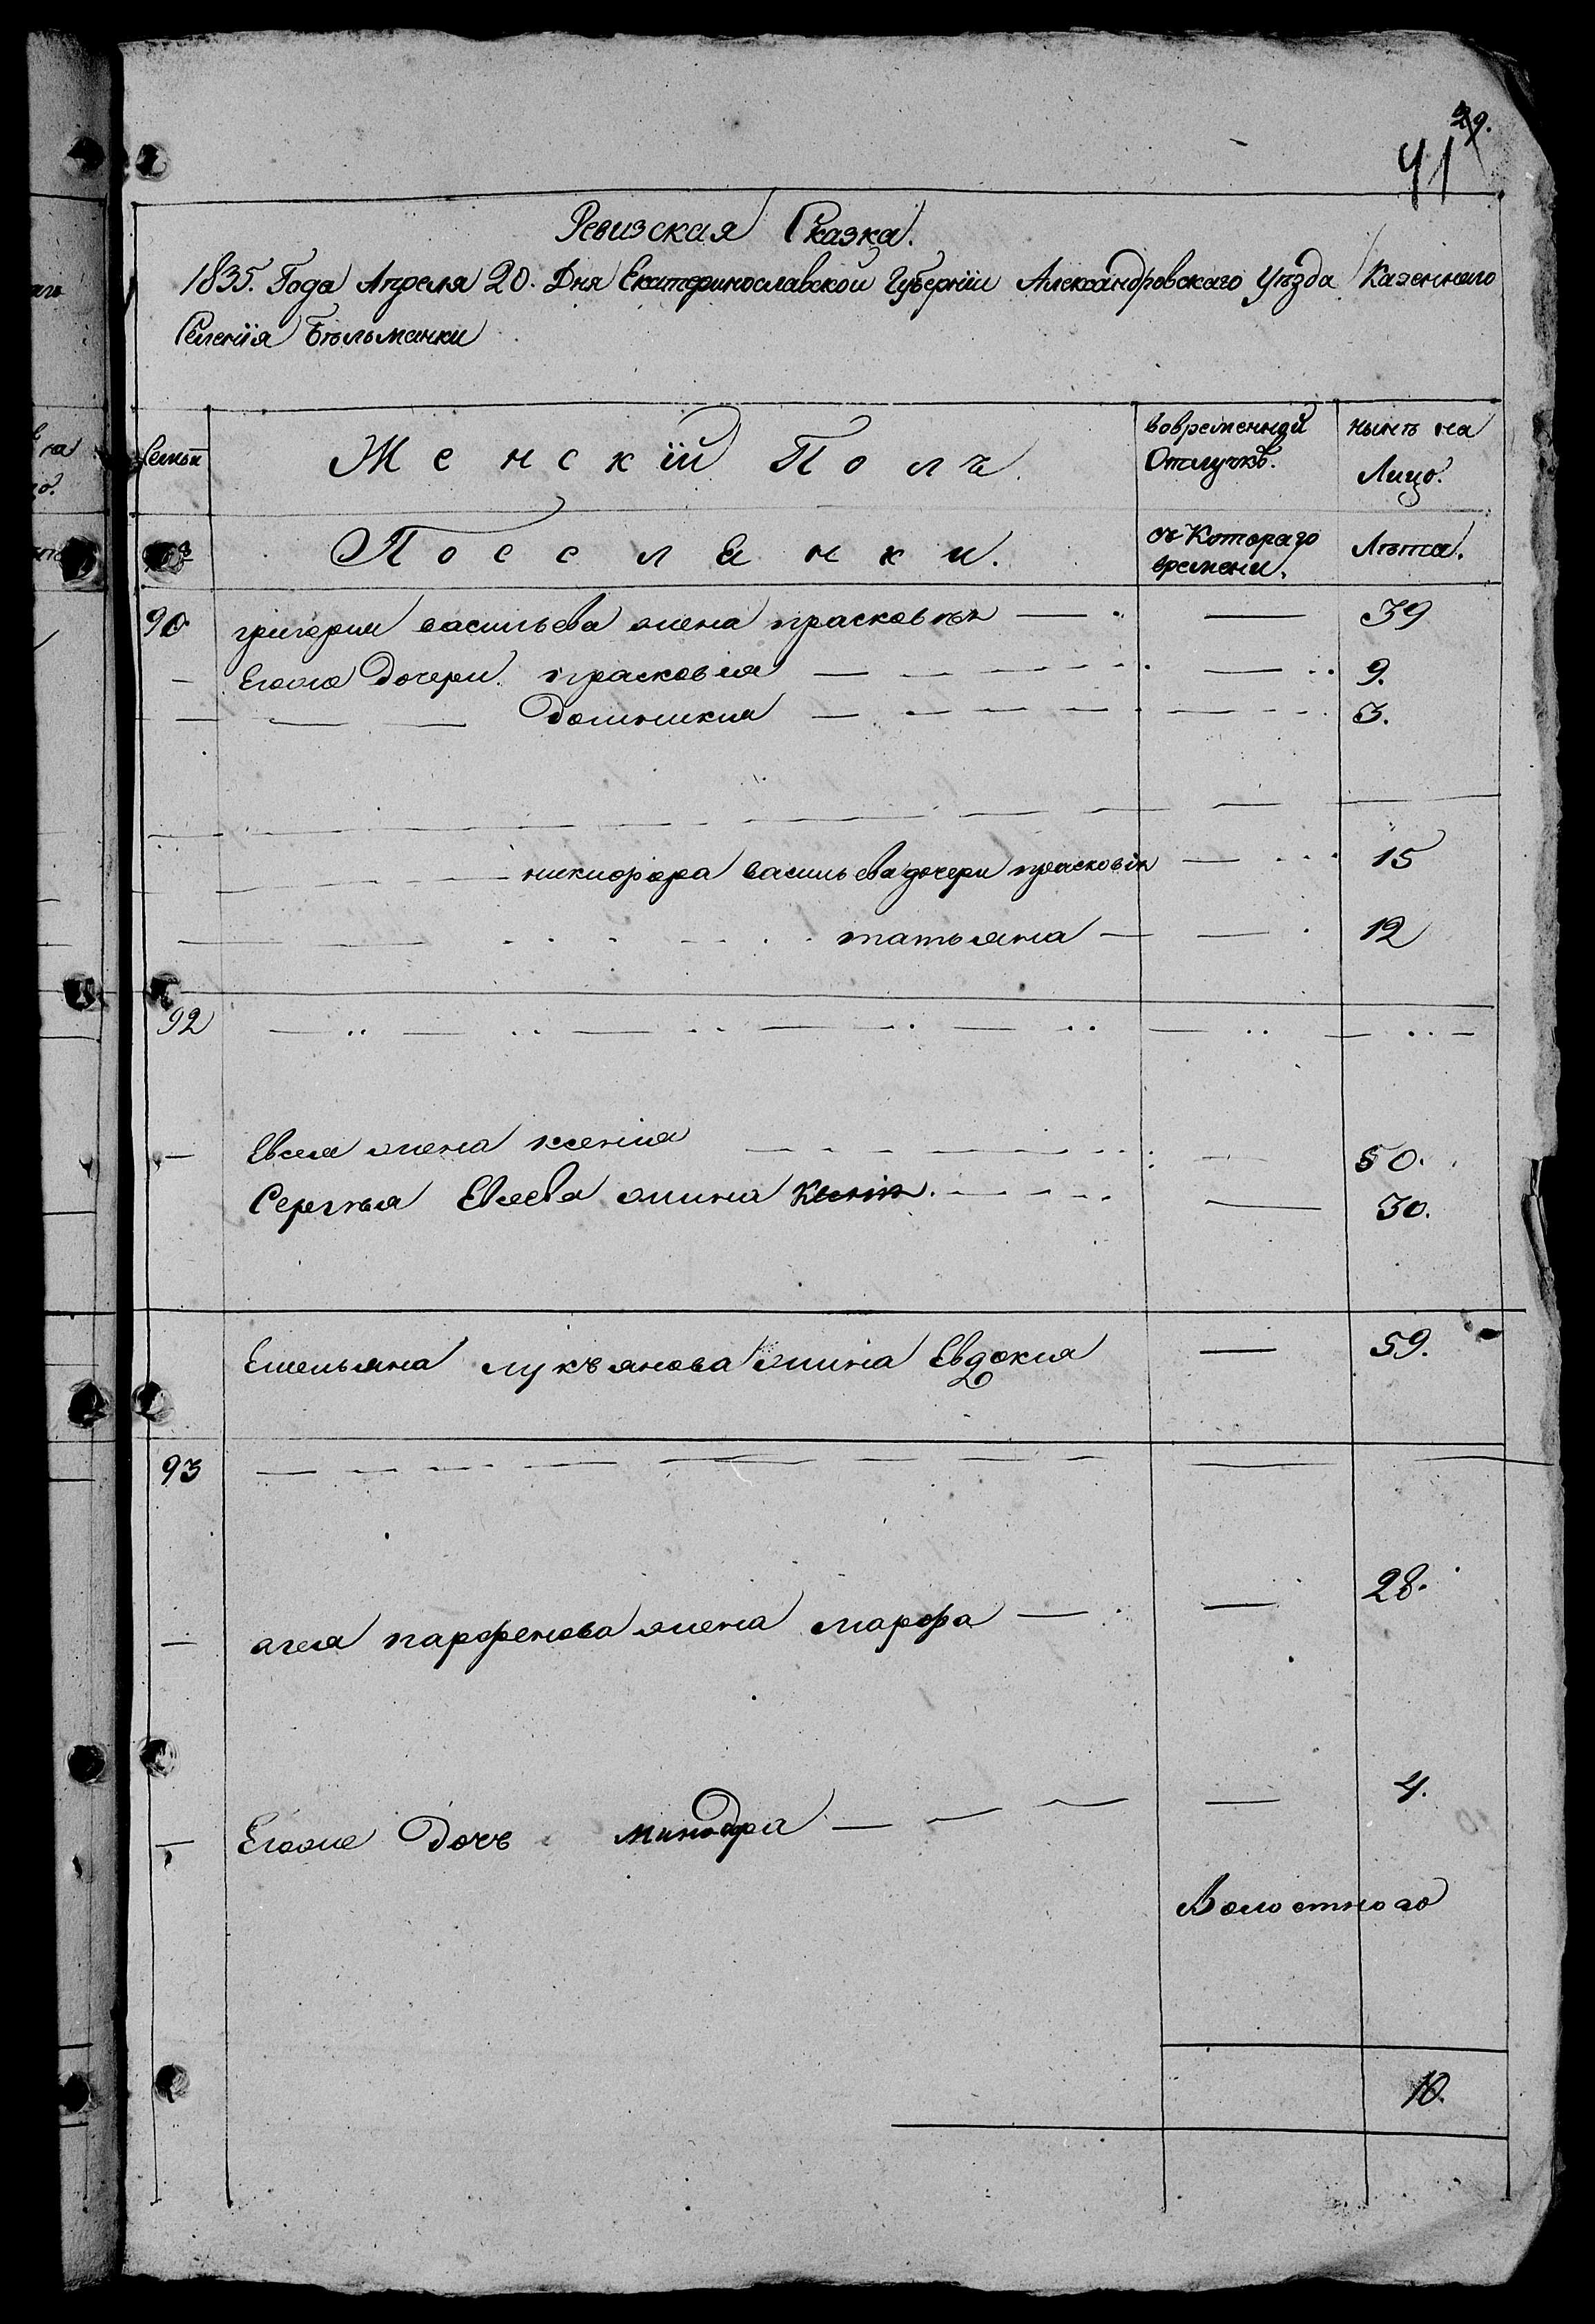 29.
41
Ревизская Сказка.
1835. Года Апреля 20. Дня Екатеринославской Губернїи Александровскаго Уѣзда Казеннаго
Селенїя Бѣльманки
Семьи Женскїй Полъ. вовременной Отлучкѣ. нынѣ на Лицо.
Поселянки. съ Котораго времени. Лѣта.
90 григория васильева жена прасковья — — 39
— Егоже Дочери прасковия — — 9.
— — — Домникия — — 3.
никифора васильева дочери прасковія — 15
татьяна — — 12
92
— Евсея жена ксения — 50.
Сергѣя Евсева жина — 30.
Емельяна лукъянова жина Евдокия — 59.
93
— агея парфенова жена марфа — — 28.
— Егоже Дочъ минодра — — 4.
Волостного
10.